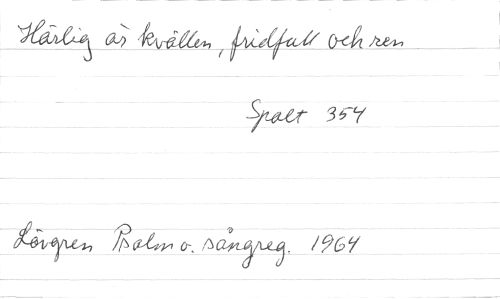 Härlig är kvällen, fridfull och ren
Spalt 354
Lövgren Psalm o. sångreg. 1964